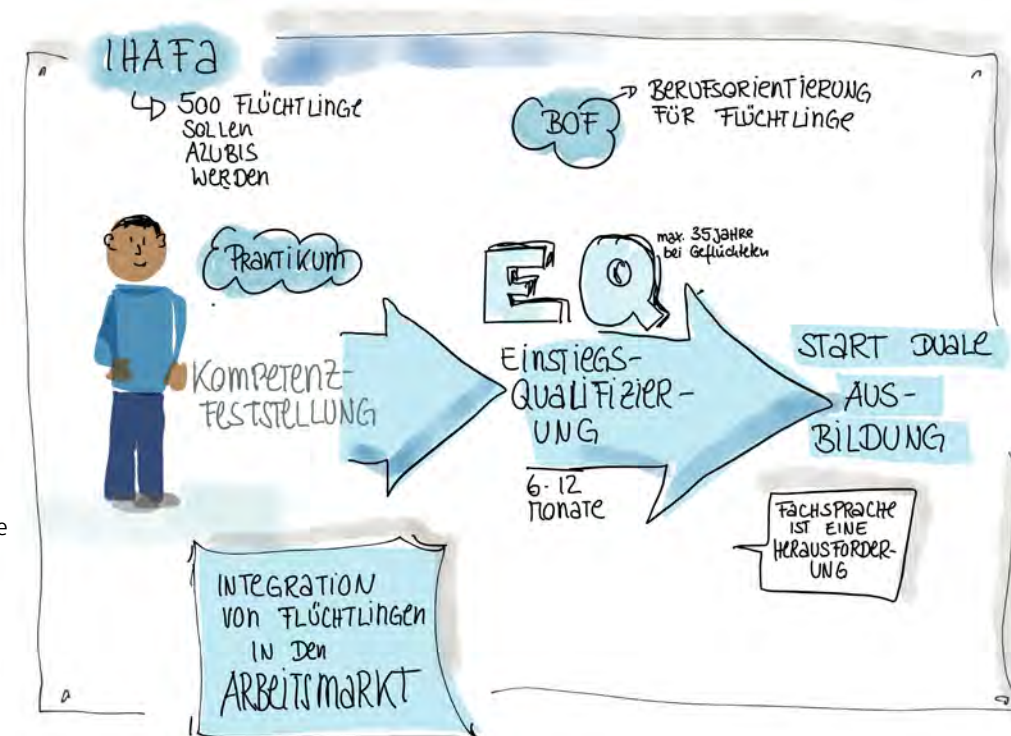 IHAFa
500 FLÜCHTLINGE
SOLLEN
AZUBIS
WERDEN
BOF
BERUFSORIENTIERUNG
FÜR FLÜCHTLINGE
PRAKTIKUM
EQ
max. 35 JAHRE
bei Geflüchteten
KOMPETENZ-
FESTSTELLUNG
EINSTIEGS-
QUALIFIZIER-
UNG
6-12
MONATE
START DUALE
AUS-
BILDUNG
FACHSPRACHE
IST EINE
HERAUSFORDER-
UNG
INTEGRATION
VON FLÜCHTLINGEN
IN DEN
ARBEITSMARKT
e